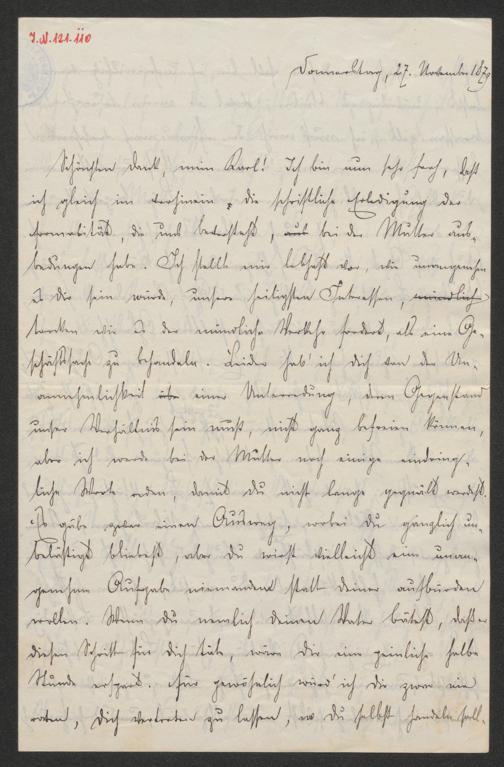 J.N. 121.110
Donnerstag, 27. November 1879
Schönsten Dank, mein Karl! Ich bin nun sehr froh, daß
ich gleich im vorhinein die schriftliche Erledigung der
Formalität, die uns bevorsteht, bei der Mutter aus-
bedungen habe. Ich stellte mir lebhaft vor, wie unangenehm
es dir sein würde, unsere heiligsten Interessen, mündlich
trocken wie es der mündliche Verkehr fordert, als eine Ge-
schäftssache zu behandeln. Leider hab' ich dich von der Un-
annehmlichkeit einer Unterredung, deren Gegenstand
unser Verhältnis sein muß, nicht ganz befreien können,
aber ich werde bei der Mutter noch einige eindring-
liche Worte reden, damit du nicht lange gequält werdest.
Es gäbe zwar einen Ausweg, wobei du gänzlich un-
belästigt bliebest, aber du wirst vielleicht eine unan-
genehme Aufgabe niemandem statt deiner aufbürden
wollen. Wenn du nemlich deinen Vater bätest, daß er
diesen Schritt für dich täte, wäre dir eine peinliche halbe
Stunde erspart. Für gewöhnlich würd' ich dir zwar nie
raten, dich vertreten zu lassen, wo du selbst handeln soll-